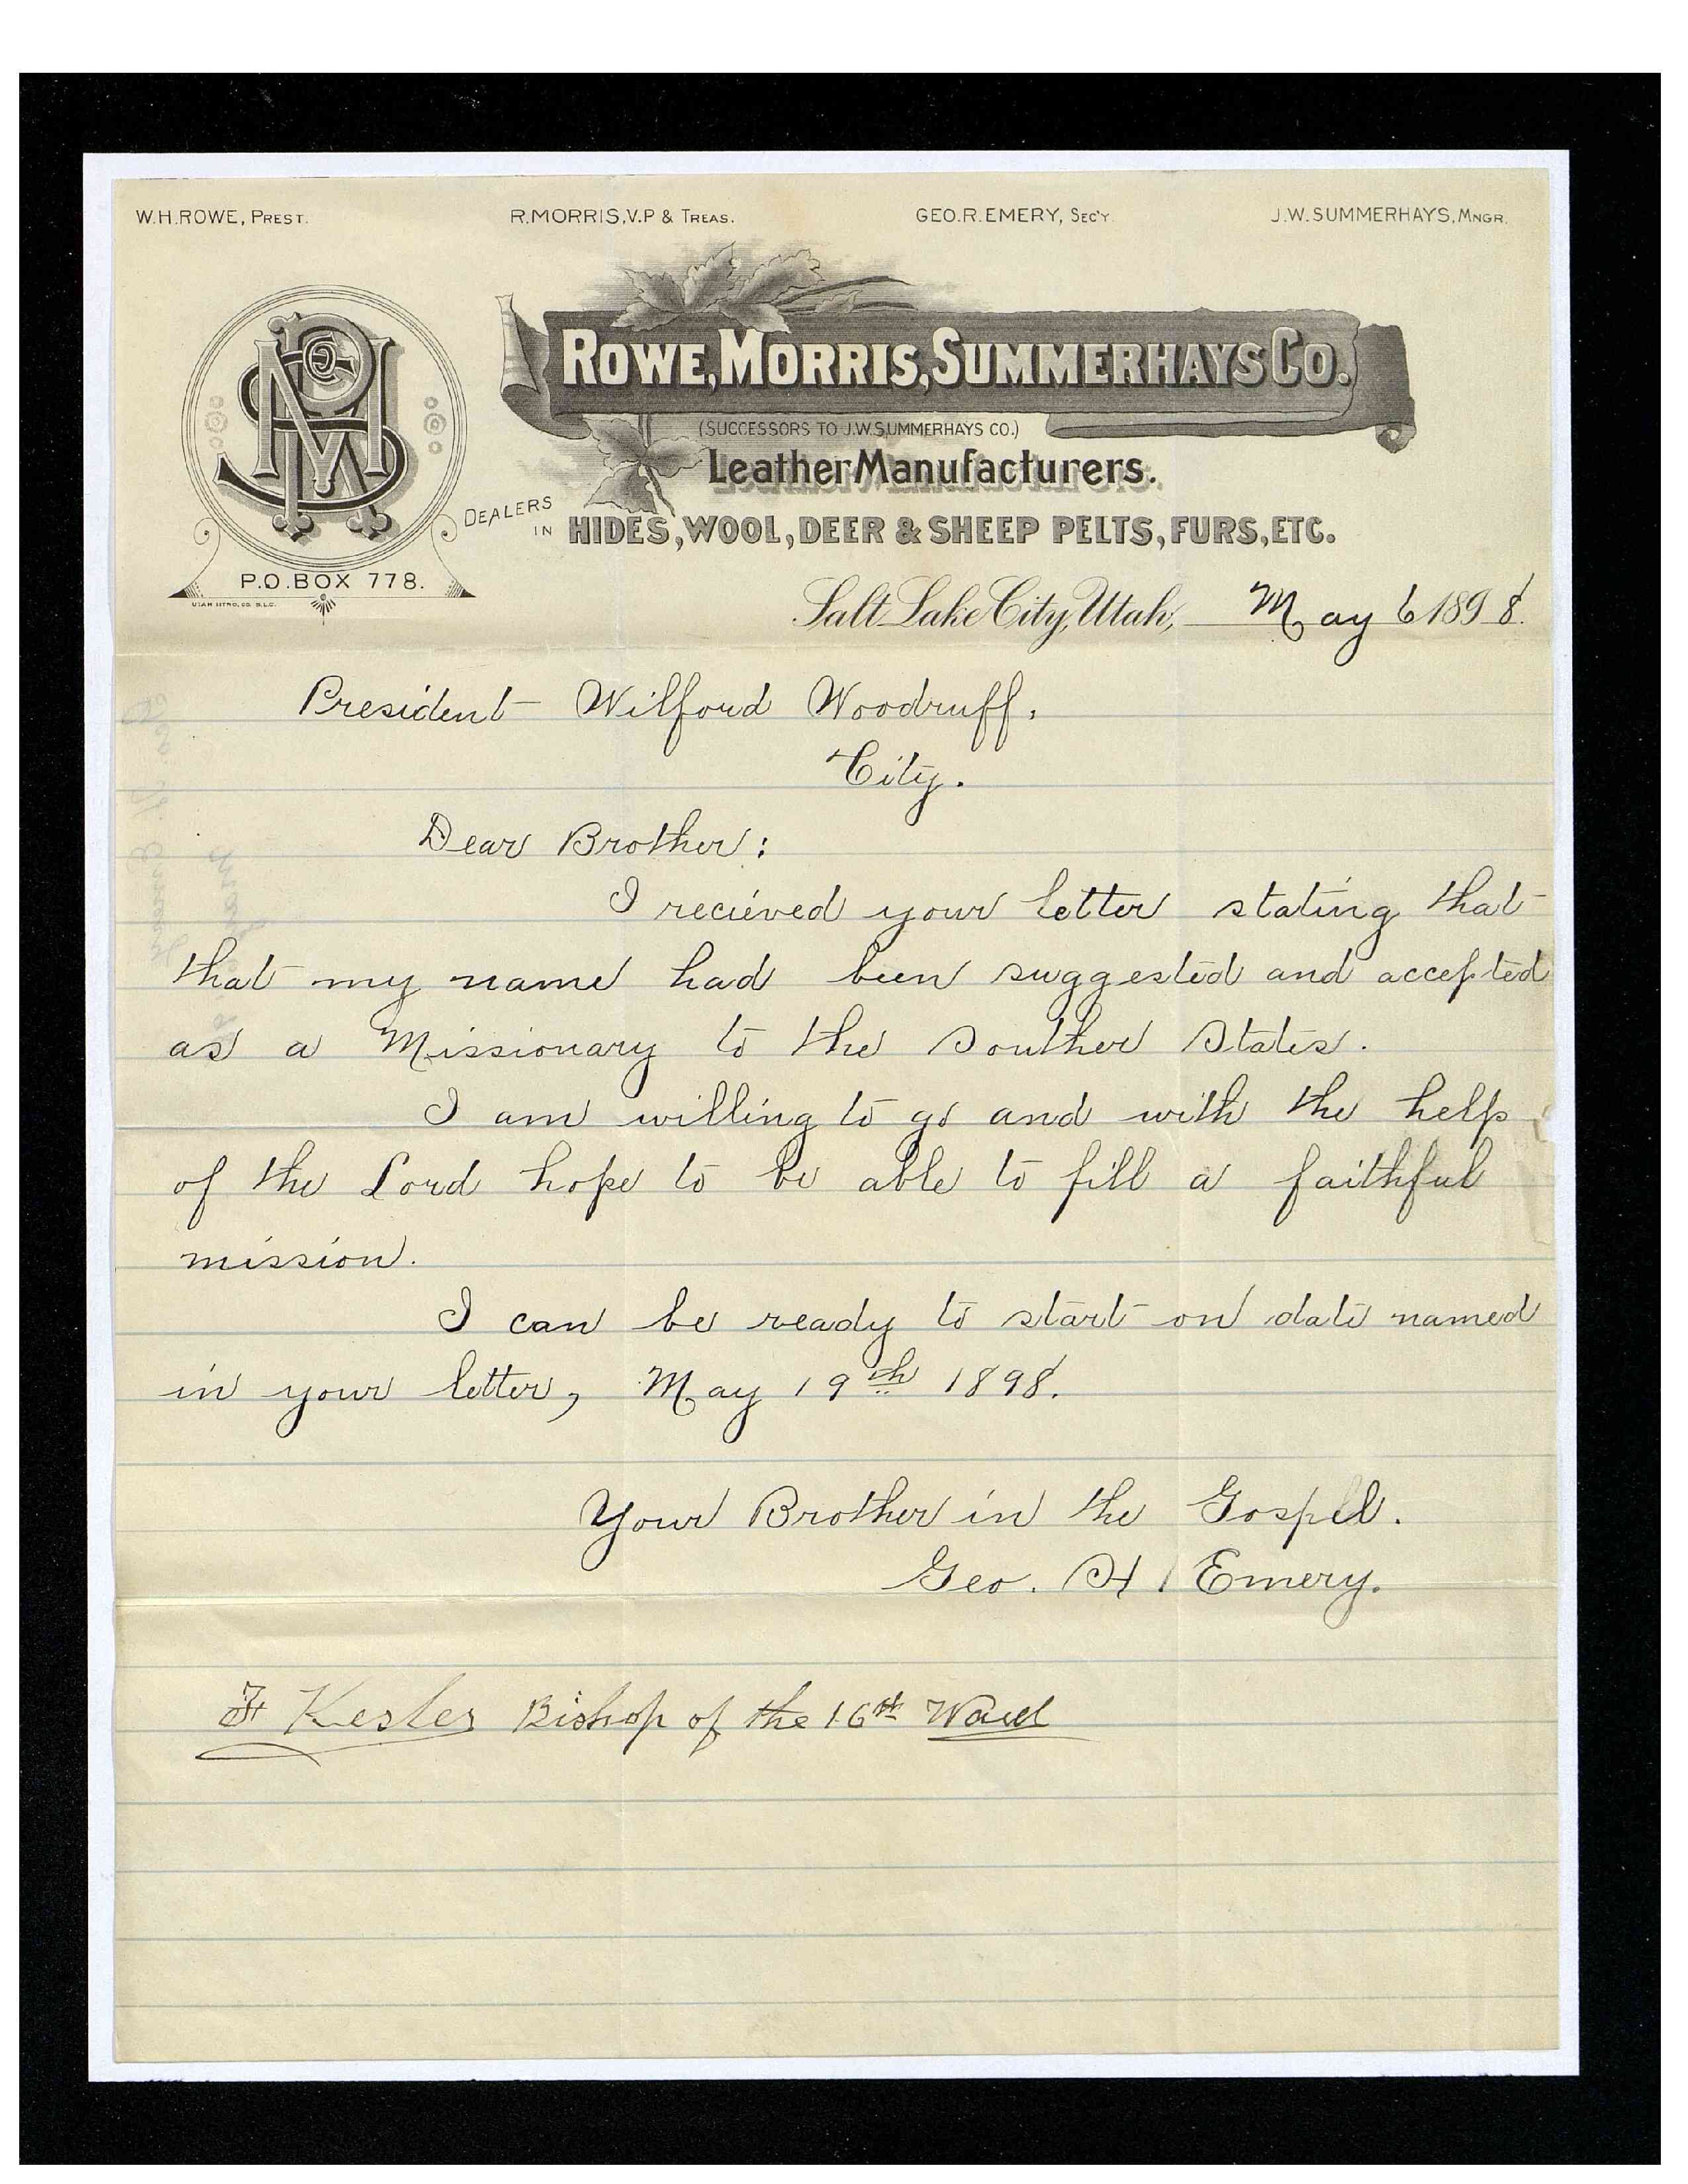 W.H.ROWE, PREST. R.MORRIS,V.P & TREAS. GEO.R.EMERY, SEC'Y. J.W.SUMMERHAYS, MNGR.
ROWE, MORRIS, SUMMERHAYS CO.
(SUCCESSORS TO J.W.SUMMERHAYS CO.)
Leather Manufacturers.
DEALERS IN HIDES, WOOL, DEER & SHEEP PELTS, FURS, ETC.
P.O.BOX 778.
UTAH LITHO. CO. S.L.C.
Salt Lake City, Utah, May 6 1898.
President Wilford Woodruff,
City.
Dear Brother:
I recieved your letter stating that
that my name had been suggested and accepted
as a Missionary to the Souther States.
I am willing to go and with the help
of the Lord hope to be able to fill a faithful
mission.
I can be ready to start on date named
in your letter, May 19th 1898.
Your Brother in the Gospel.
Geo. H. Emery.
F Kesler Bishop of the 16th Ward